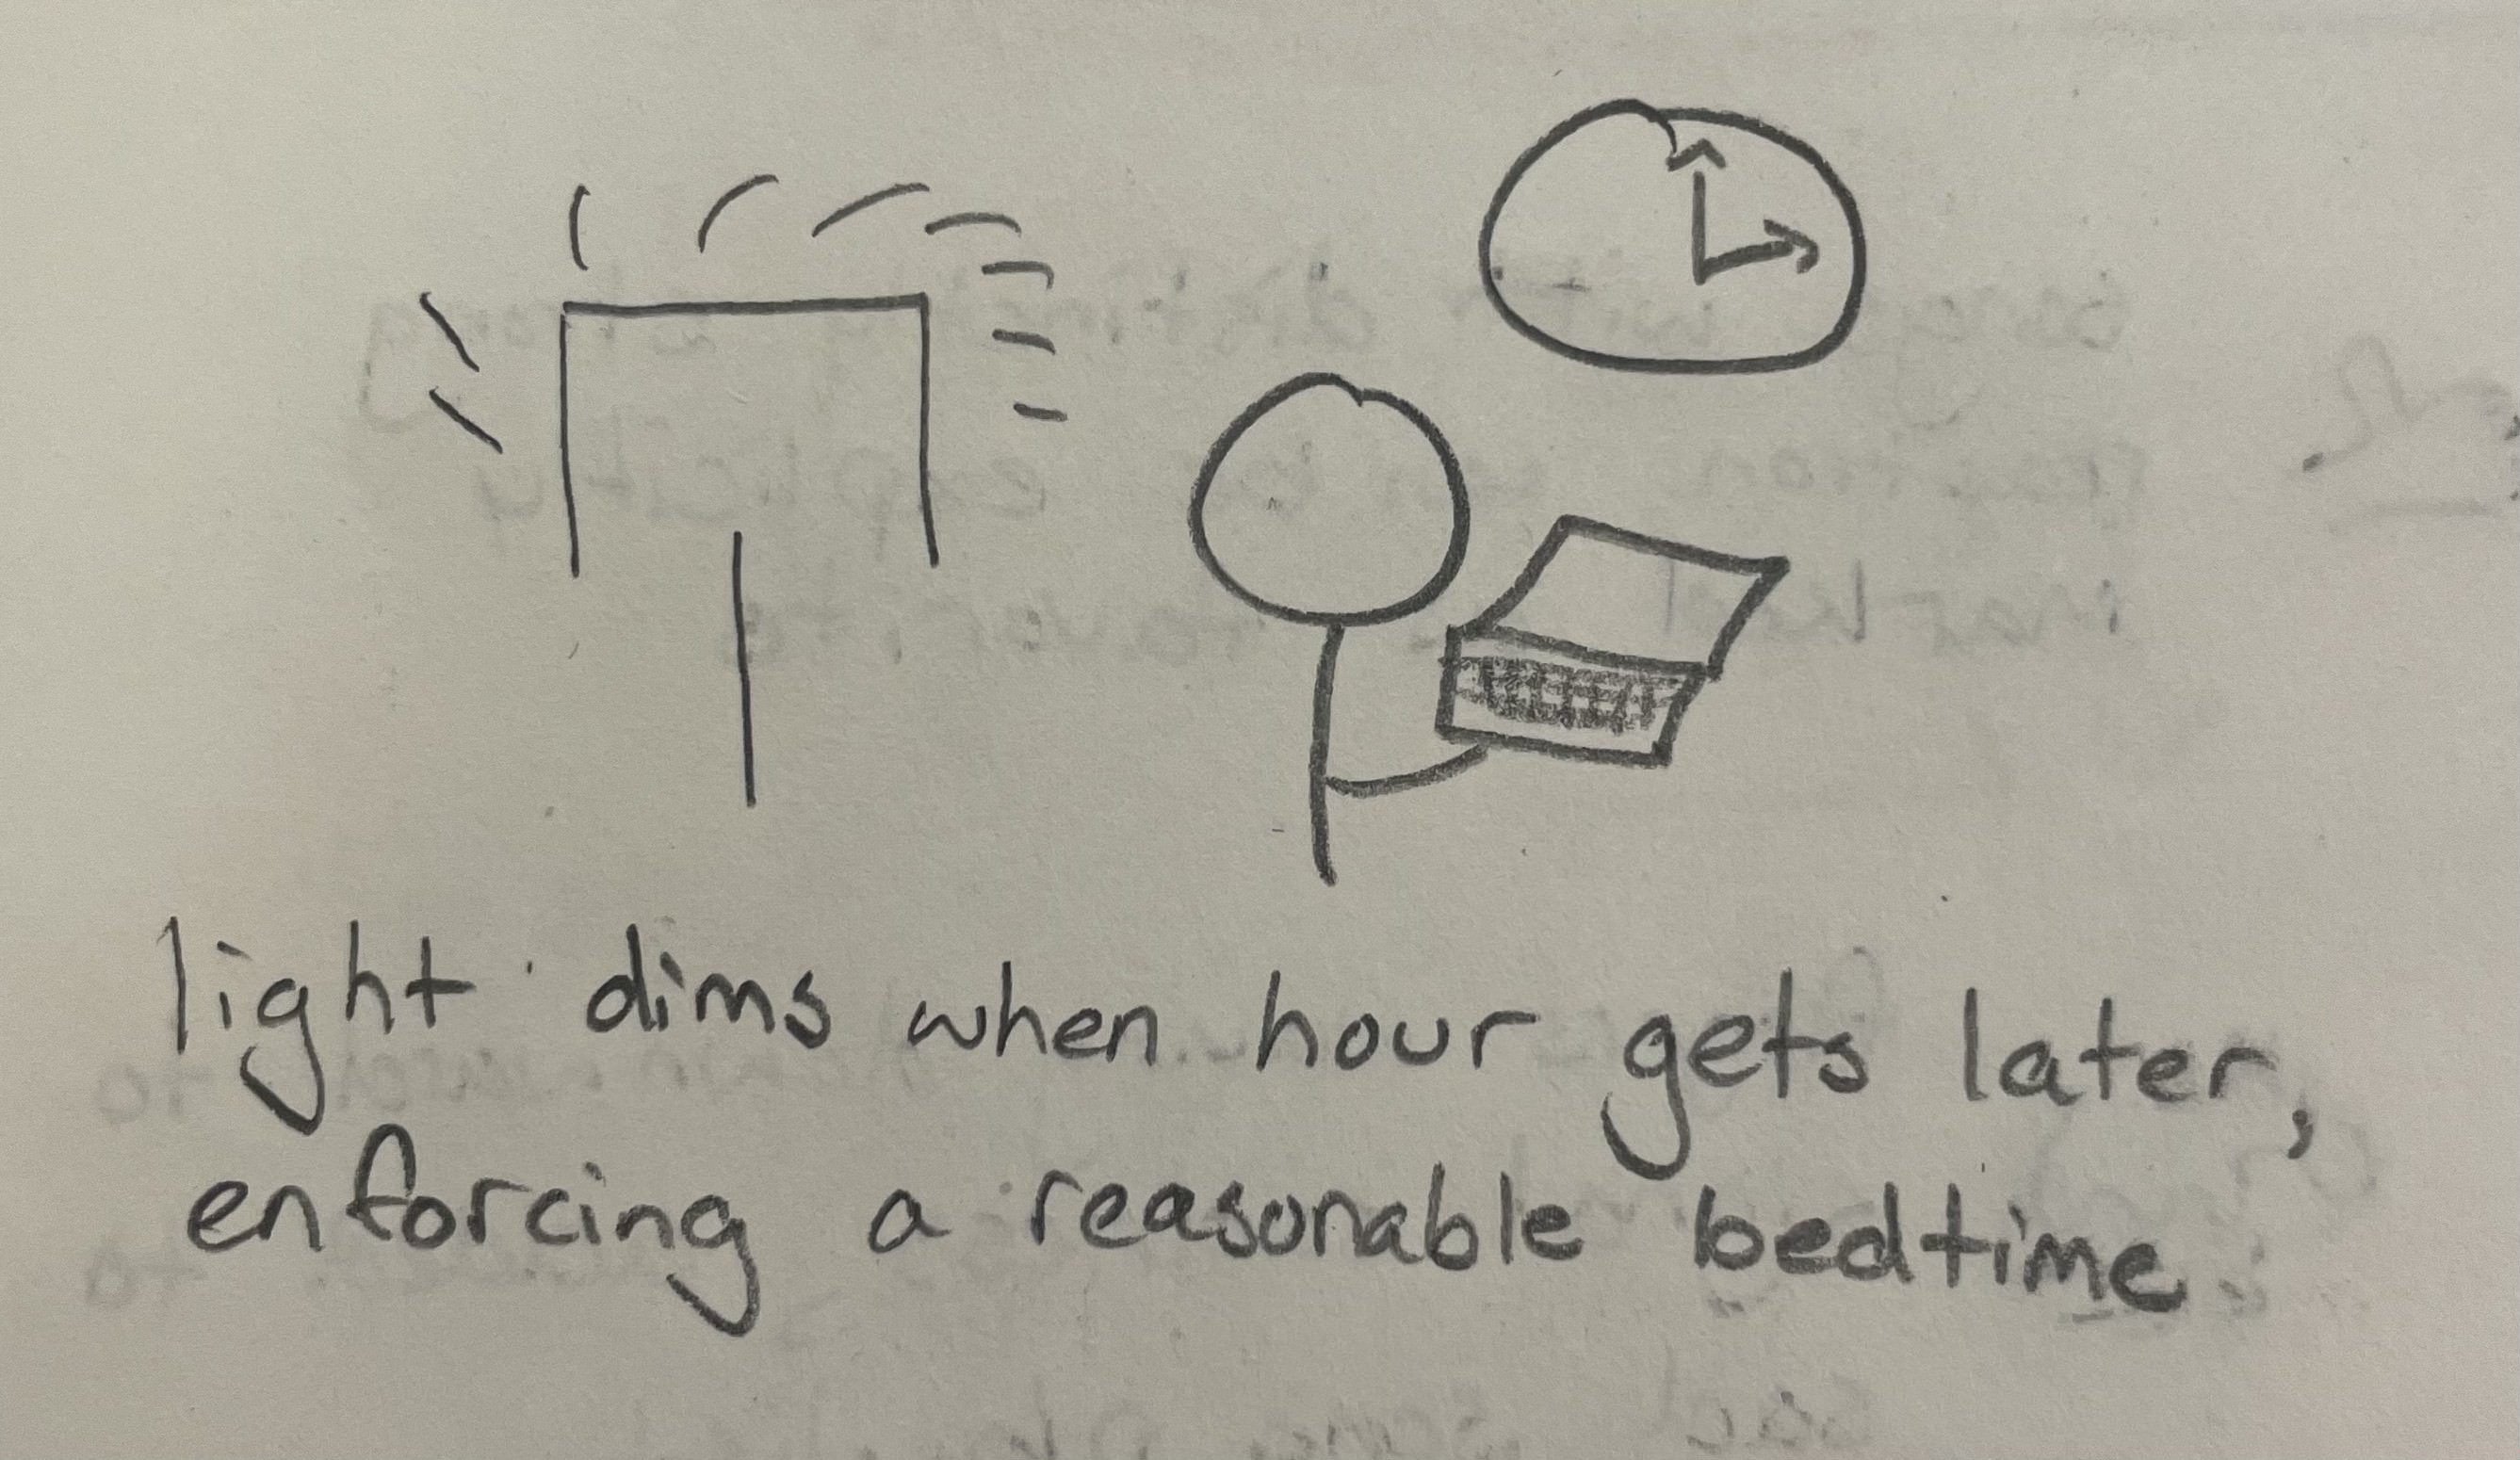 light dims when hour gets later,
enforcing a reasonable bedtime